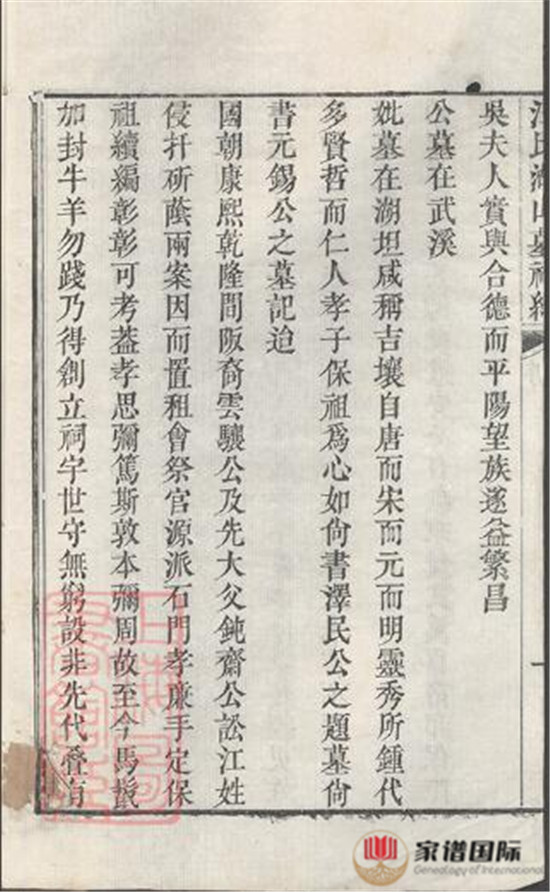 吳夫人實與合德而平陽望族遂益繁昌
公墓在武溪
妣墓在湖坦咸稱吉壤自唐而宋而元而明靈秀所鍾代
多賢哲而仁人孝子保祖爲心如尙書澤民公之題墓尙
書元錫公之墓記迨
國朝康熙乾隆間阪裔雲驤公及先大父鈍齋公訟江姓
侵扦斫蔭兩案因而置租會祭官源派石門孝廉手定保
祖續編彰彰可考葢孝思彌篤斯敦本彌周故至今馬鬛
加封牛羊勿踐乃得創立祠宇世守無窮設非先代疊有
家谱国际
Genealogy of International